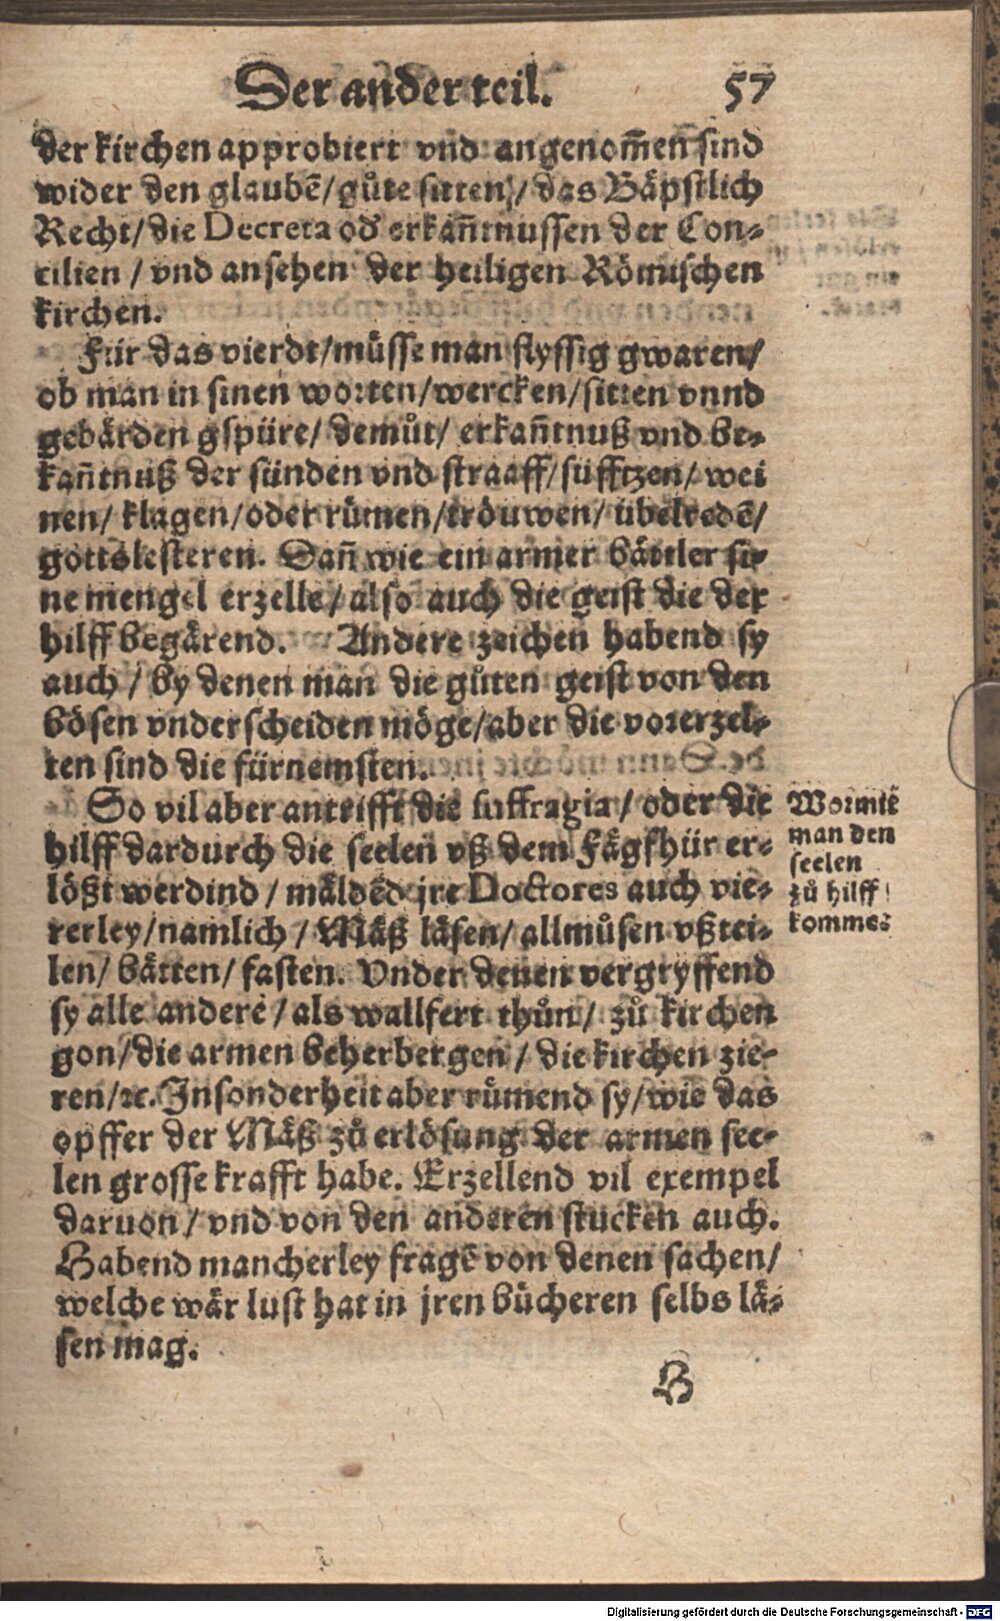 Der ander teil. 57
der kirchen approbiert vnd angenom̃en sind
wider den glaubẽ/gůte sitten/das Bäpstlich
Recht/die Decreta od̓ erkañtnussen der Con-
cilien/vnd ansehen der heiligen Römischen
kirchen.
Für das vierdt/müsse man flyssig gwaren/
ob man in sinen worten/wercken/sitten vnnd
gebärden gspüre/ demůt/ erkañtnuß vnd be-
kañtnuß der sünden vnd straaff/süfftzen/wei
nen/ klagen/oder rümen/tröuwen/ übelredẽ/
gottslesteren. Dañ wie ein armer bättler si-
ne mengel erzelle/also auch die geist die der
hilff begärend. Andere zeichen habend sy
auch/by denen man die gůten geist von den
bösen vnderscheiden möge/aber die vorerzel-
ten sind die fürnemsten.
So vil aber antrifft die suffragia/oder die
hilff dardurch die seelen vß dem Fägfhür er-
lößt werdind/mäldẽd jre Doctores auch vie-
rerley/namlich/Mäß läsen/allmůsen vßtei-
len/bätten/fasten. Vnder denen vergryffend
sy alle andere/als wallfert thůn/ zů kirchen
gon/die armen beherbergen/die kirchen zie-
ren/ꝛc. Insonderheit aber rümend sy/wie das
opffer der Mäß zů erlösung der armen see-
len grosse krafft habe. Erzellend vil exempel
daruon/vnd von den anderen stucken auch.
Habend mancherley fragẽ von denen sachen/
welche wär lust hat in jren bücheren selbs lä-
sen mag.
Wormitẽ
man den
seelen
zů hilff
komme.
H
Digitalisierung gefördert durch die Deutsche Forschungsgemeinschaft - DFG